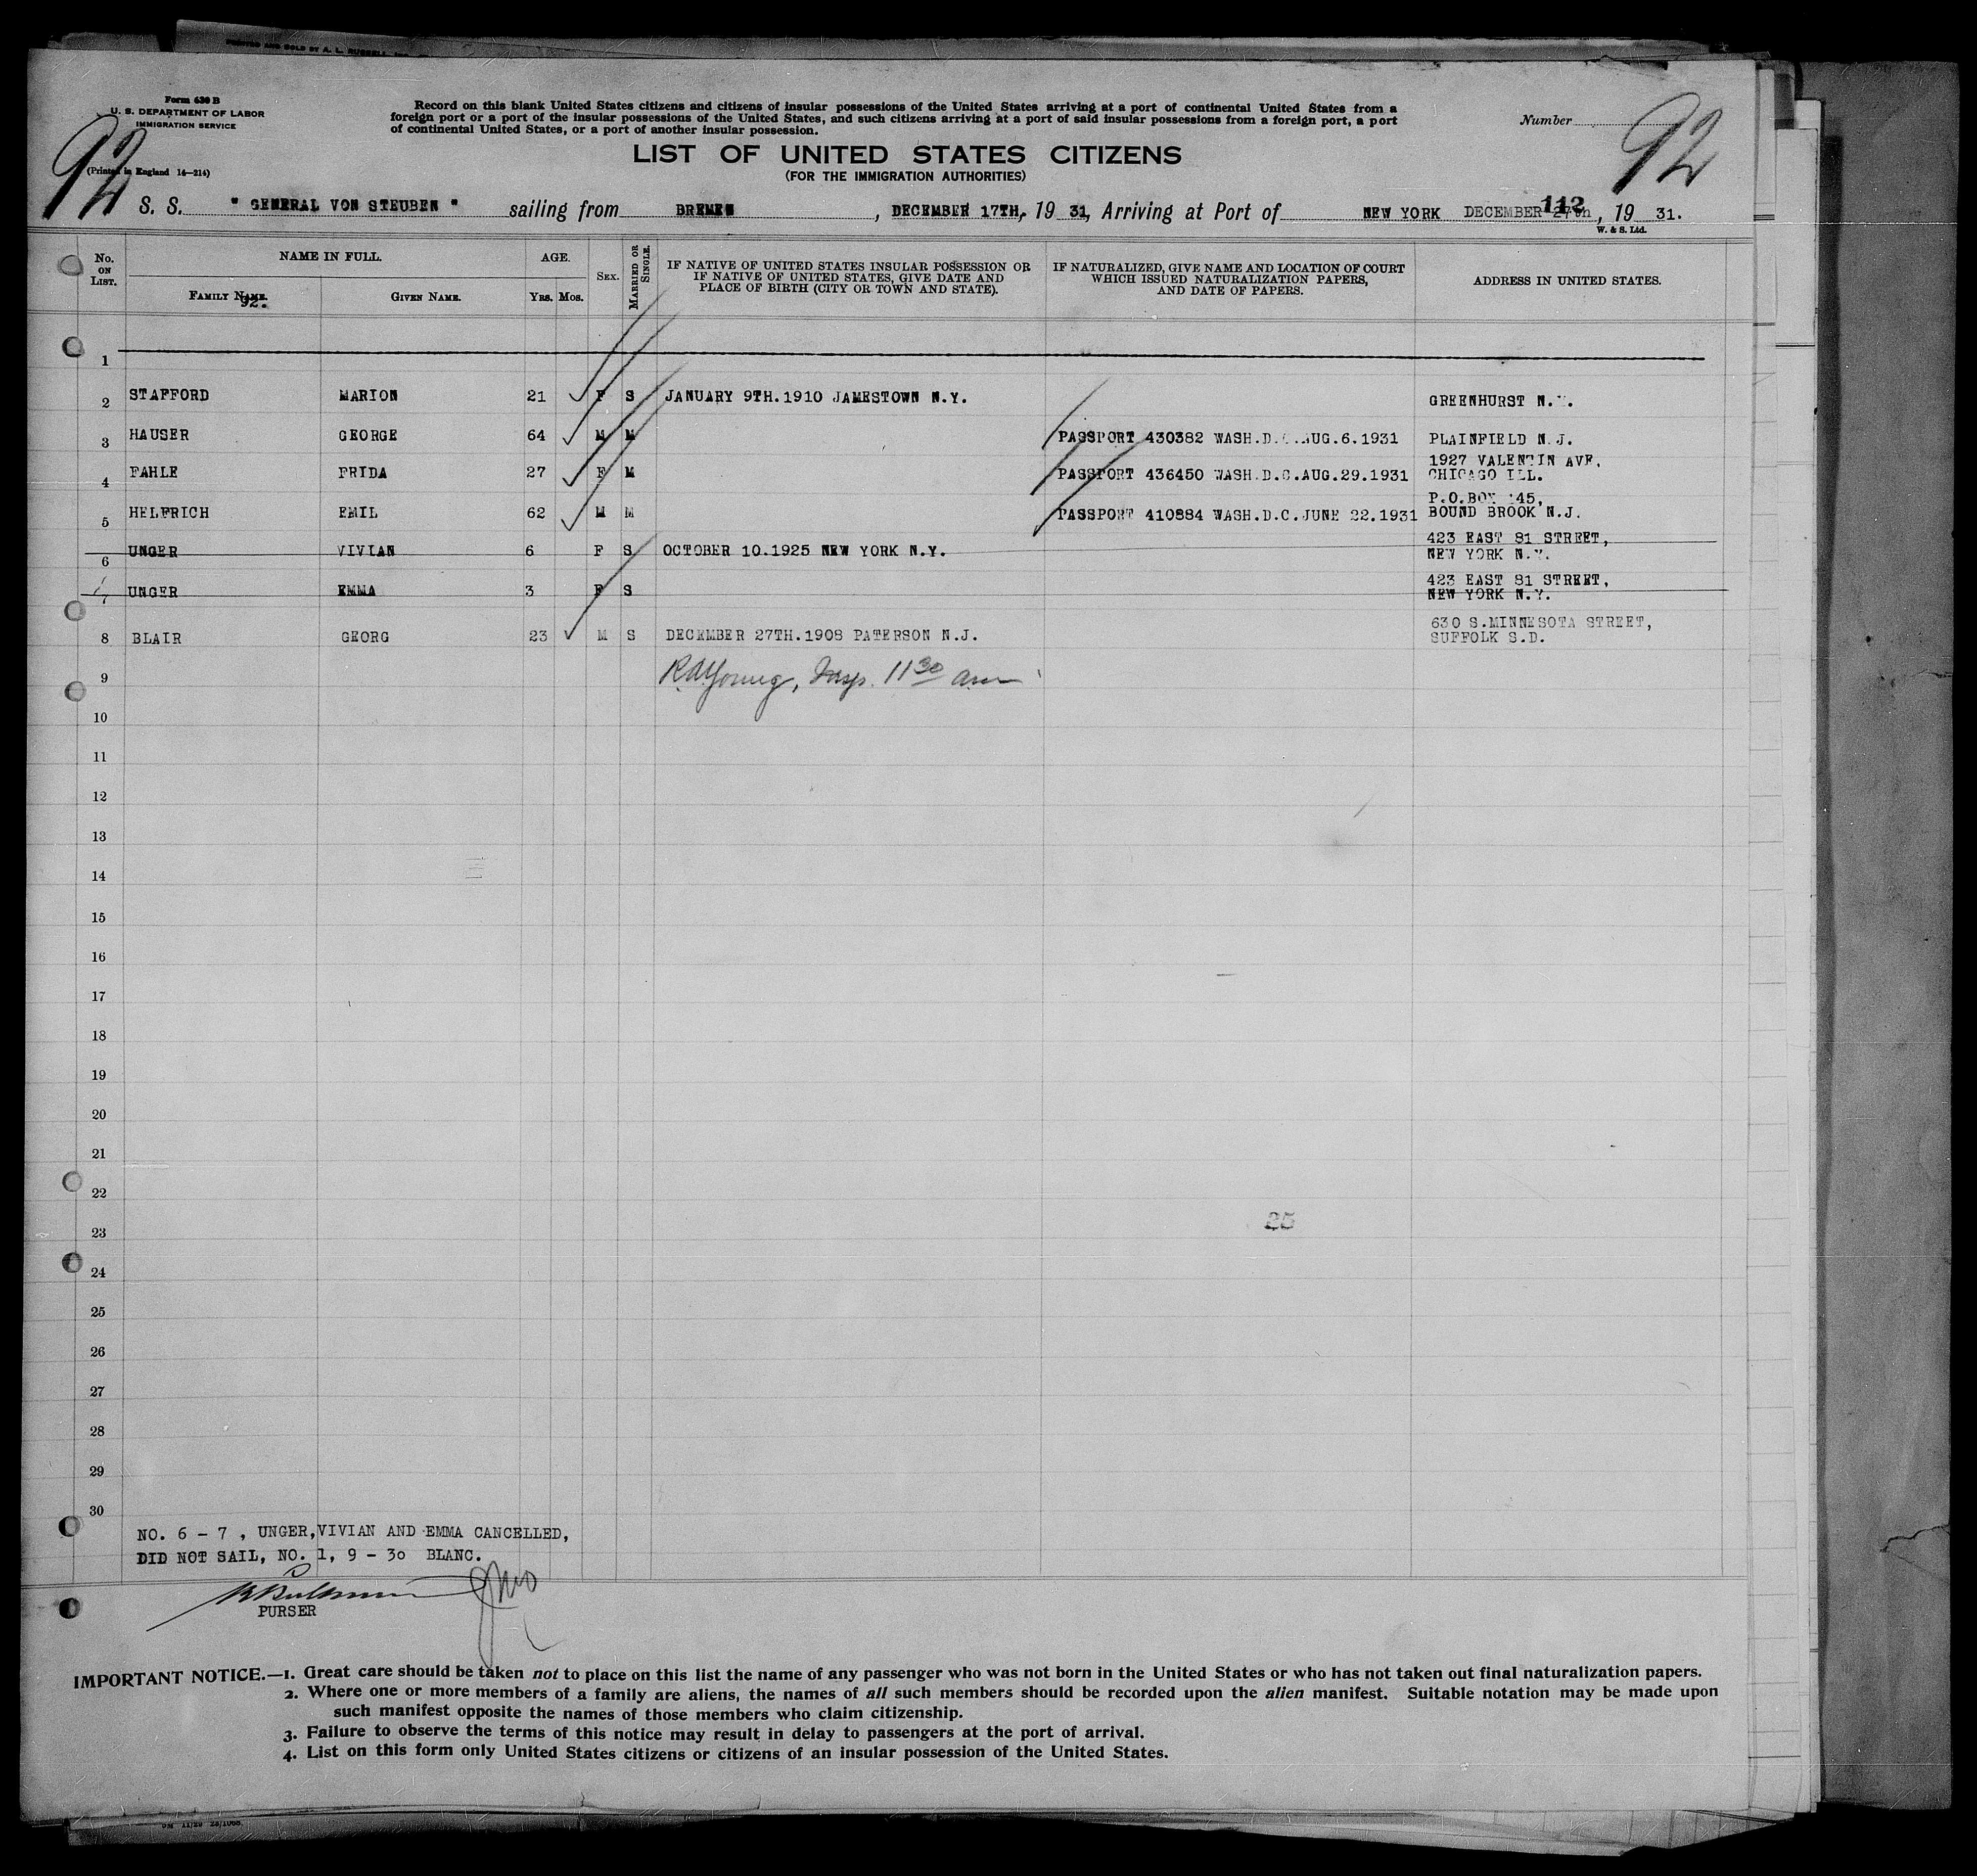 PRINTED AND SOLD BY A. L. RUSSELL, INC.
Form 630 B
U. S. DEPARTMENT OF LABOR
IMMIGRATION SERVICE
(Printed in England 14—214)
92
Record on this blank United States citizens and citizens of insular possessions of the United States arriving at a port of continental United States from a
foreign port or a port of the insular possessions of the United States, and such citizens arriving at a port of said insular possessions from a foreign port, a port
of continental United States, or a port of another insular possession.
Number
92
LIST OF UNITED STATES CITIZENS
(FOR THE IMMIGRATION AUTHORITIES)
S. S. " GENERAL VON STEUBEN " sailing from BREMEN, DECEMBER 17TH, 19 31, Arriving at Port of NEW YORK DECEMBER 27th, 19 31.
112
W. & S. Ltd.
No. ON LIST. NAME IN FULL. AGE. SEX. MARRIED OR SINGLE. IF NATIVE OF UNITED STATES INSULAR POSSESSION OR IF NATIVE OF UNITED STATES, GIVE DATE AND PLACE OF BIRTH (CITY OR TOWN AND STATE). IF NATURALIZED, GIVE NAME AND LOCATION OF COURT WHICH ISSUED NATURALIZATION PAPERS, AND DATE OF PAPERS. ADDRESS IN UNITED STATES.
FAMILY NAME. GIVEN NAME. YRS. MOS.
92.
1
2 STAFFORD MARION 21 F S JANUARY 9TH.1910 JAMESTOWN N.Y. GREENHURST N.Y.
3 HAUSER GEORGE 64 M M PASSPORT 430382 WASH.D.C.AUG.6.1931 PLAINFIELD N.J.
4 FAHLE FRIDA 27 F M PASSPORT 436450 WASH.D.C.AUG.29.1931 1927 VALENTIN AVE, CHICAGO ILL.
5 HELFRICH EMIL 62 M M PASSPORT 410884 WASH.D.C.JUNE 22.1931 P.O.BOX 145, BOUND BROOK N.J.
6 UNGER VIVIAN 6 F S OCTOBER 10.1925 NEW YORK N.Y. 423 EAST 81 STREET, NEW YORK N.Y.
7 UNGER EMMA 3 F S 423 EAST 81 STREET, NEW YORK N.Y.
8 BLAIR GEORG 23 M S DECEMBER 27TH.1908 PATERSON N.J. 630 S.MINNESOTA STREET, SUFFOLK S.D.
9 R A Young, Insp. 11 30 am
10
11
12
13
14
15
16
17
18
19
20
21
22
23
25
24
25
26
27
28
29
30
NO. 6 - 7 , UNGER,VIVIAN AND EMMA CANCELLED,
DID NOT SAIL, NO. 1, 9 - 30 BLANC.
PURSER
IMPORTANT NOTICE.—1. Great care should be taken not to place on this list the name of any passenger who was not born in the United States or who has not taken out final naturalization papers.
2. Where one or more members of a family are aliens, the names of all such members should be recorded upon the alien manifest. Suitable notation may be made upon
such manifest opposite the names of those members who claim citizenship.
3. Failure to observe the terms of this notice may result in delay to passengers at the port of arrival.
4. List on this form only United States citizens or citizens of an insular possession of the United States.